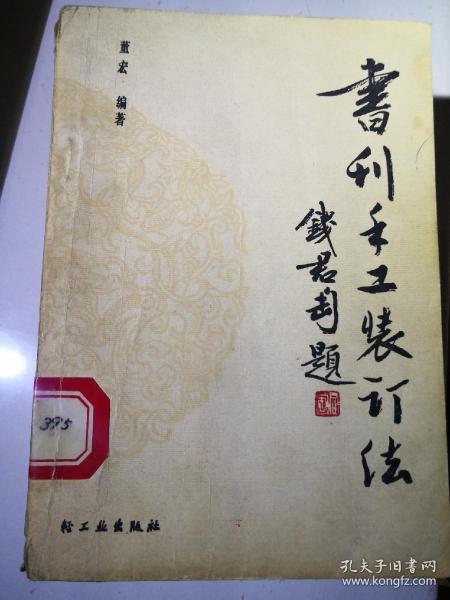 書刊手工装订法
錢君匋題
董宏 编著
395
轻工业出版社
孔夫子旧书网
www.kongfz.com